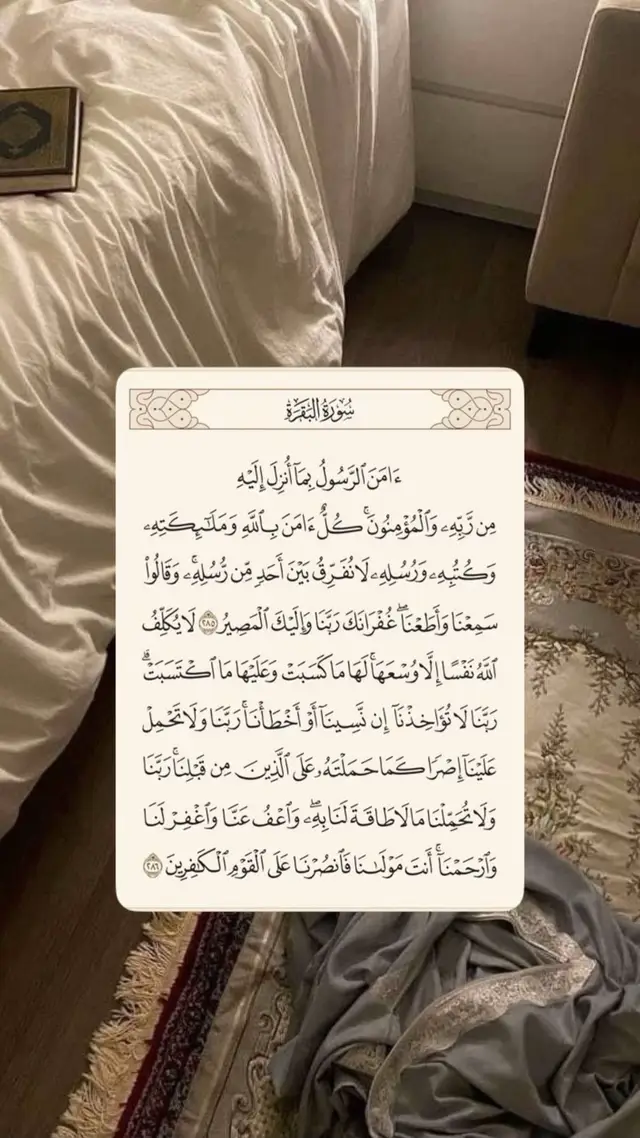 سُورَةُ البَقَرَةِ
ءَامَنَ ٱلرَّسُولُ بِمَآ أُنزِلَ إِلَيْهِ
مِن رَّبِّهِۦ وَٱلْمُؤْمِنُونَ ۚ كُلٌّ ءَامَنَ بِٱللَّهِ وَمَلَـٰٓئِكَتِهِۦ
وَكُتُبِهِۦ وَرُسُلِهِۦ لَا نُفَرِّقُ بَيْنَ أَحَدٍ مِّن رُّسُلِهِۦ ۚ وَقَالُوا۟
سَمِعْنَا وَأَطَعْنَا ۖ غُفْرَانَكَ رَبَّنَا وَإِلَيْكَ ٱلْمَصِيرُ ٢٨٥ لَا يُكَلِّفُ
ٱللَّهُ نَفْسًا إِلَّا وُسْعَهَا ۚ لَهَا مَا كَسَبَتْ وَعَلَيْهَا مَا ٱكْتَسَبَتْ ۗ
رَبَّنَا لَا تُؤَاخِذْنَآ إِن نَّسِينَآ أَوْ أَخْطَأْنَا ۚ رَبَّنَا وَلَا تَحْمِلْ
عَلَيْنَآ إِصْرًا كَمَا حَمَلْتَهُۥ عَلَى ٱلَّذِينَ مِن قَبْلِنَا ۚ رَبَّنَا
وَلَا تُحَمِّلْنَا مَا لَا طَاقَةَ لَنَا بِهِۦ ۖ وَٱعْفُ عَنَّا وَٱغْفِرْ لَنَا
وَٱرْحَمْنَآ ۚ أَنتَ مَوْلَىٰنَا فَٱنصُرْنَا عَلَى ٱلْقَوْمِ ٱلْكَـٰفِرِينَ ٢٨٦